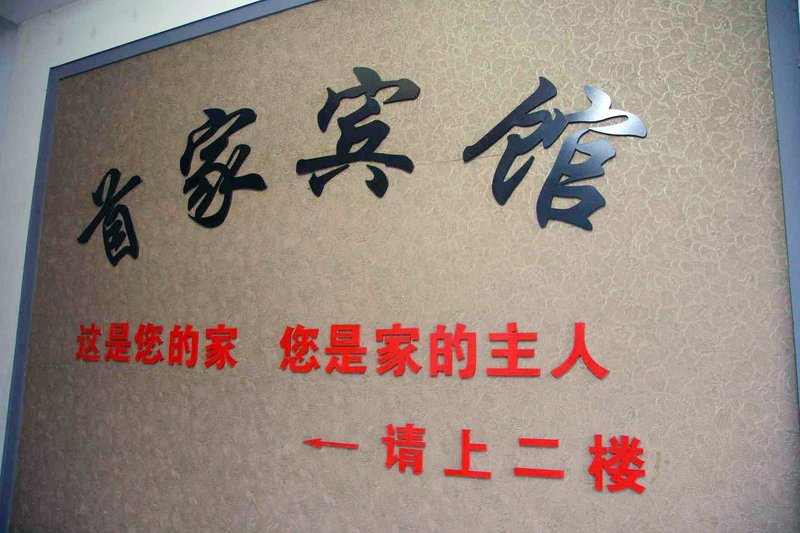 首家宾馆
这是您的家 您是家的主人
←请上二楼